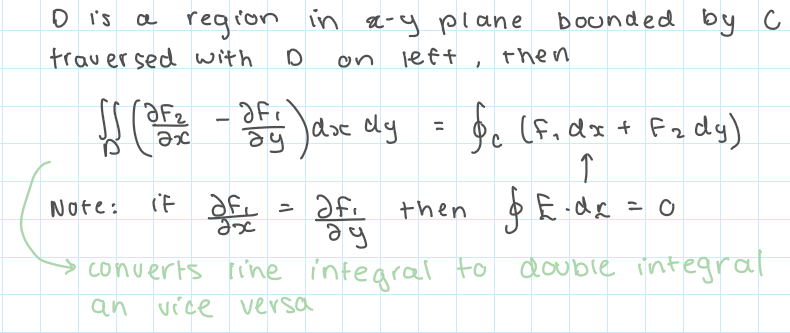 D is a region in x-y plane bounded by C
traversed with D on left, then
∬_D (∂F₂/∂x - ∂F₁/∂y) dx dy = ∮_C (F₁ dx + F₂ dy)
Note: if ∂F₁/∂x = ∂F₁/∂y then ∮ F̲·dr̲ = 0
converts line integral to double integral
an vice versa